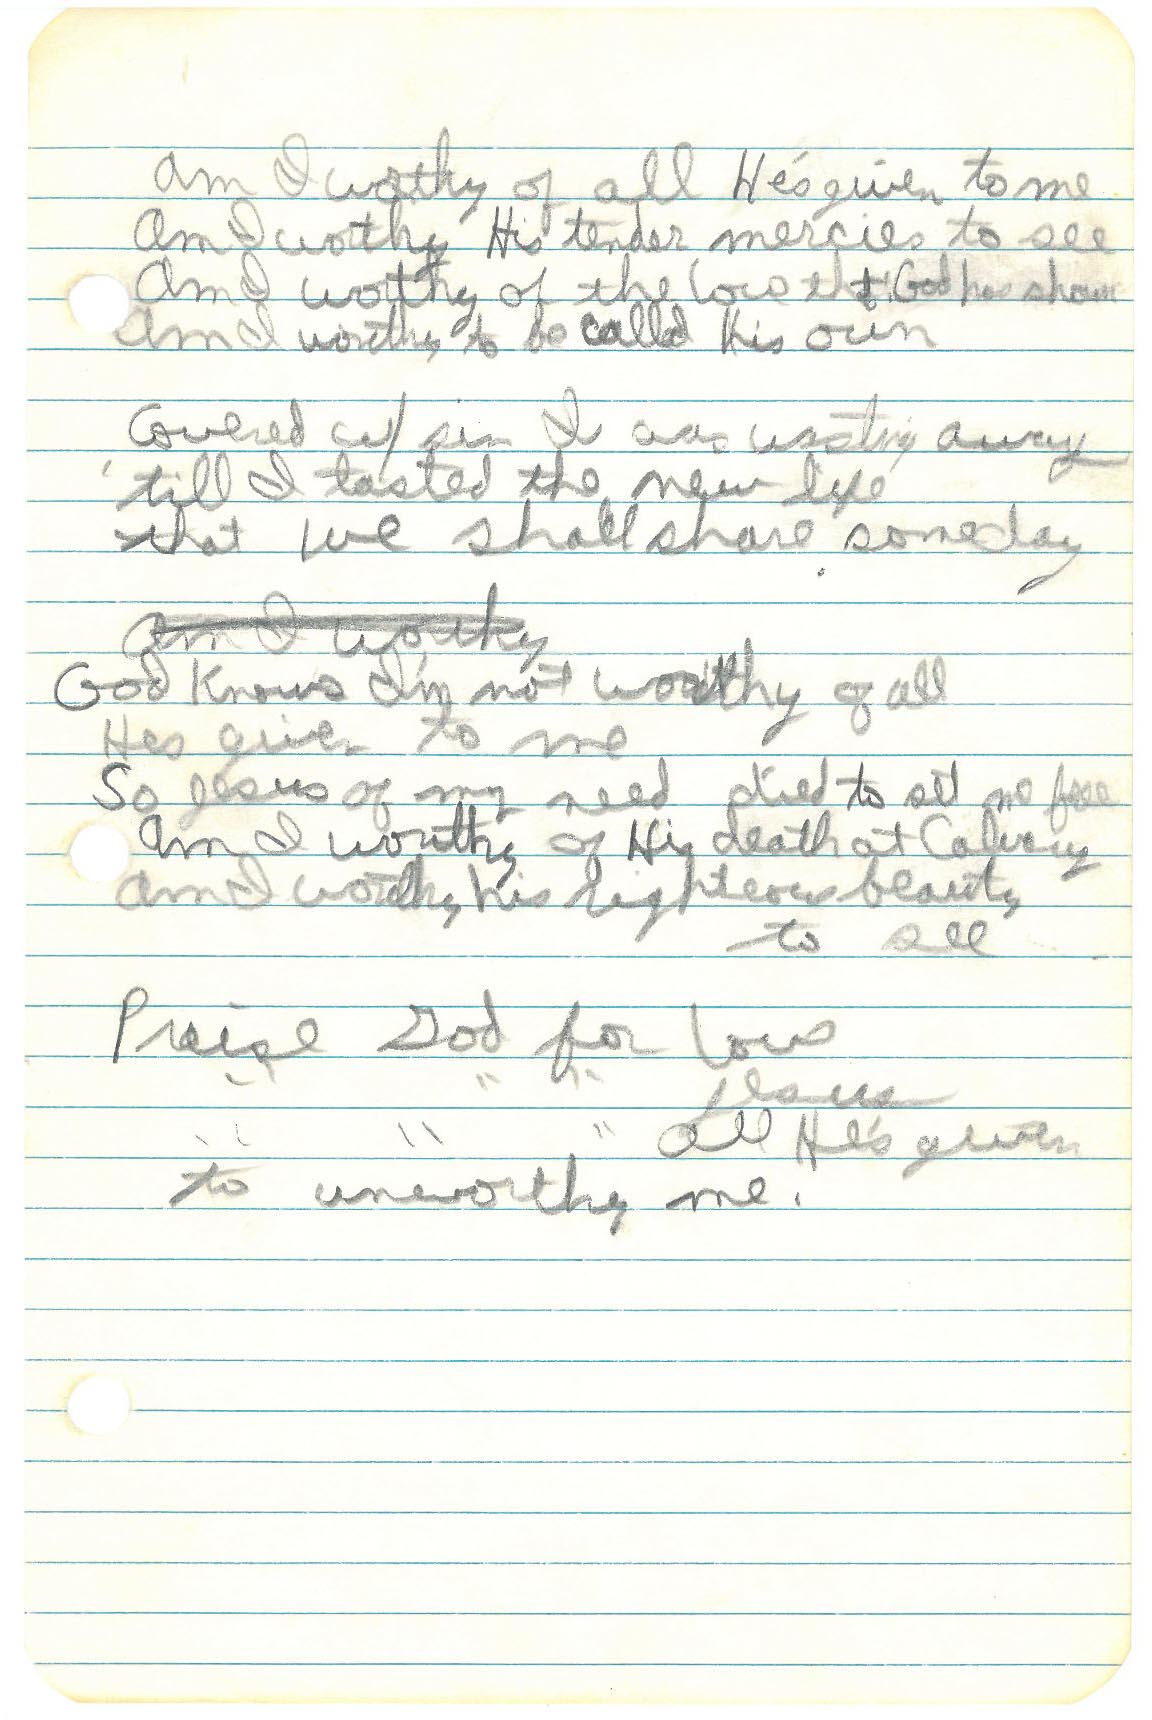 Am I worthy of all He's given to me
Am I worthy His tender mercies to see
Am I worthy of the love that God has shown
Am I worthy to be called his own
Covered w/ sin I was wasting away
'till I tasted the new life
that we shall share someday
Am I worthy
God knows I'm not worthy of all
Hes given to me
So Jesus of my need died to set me free
Am I worthy of His death at Calvary
Am I worthy his righteous beauty
to see
Praise God for love
" " " Jesus
" " " all He's given
to unworthy me.